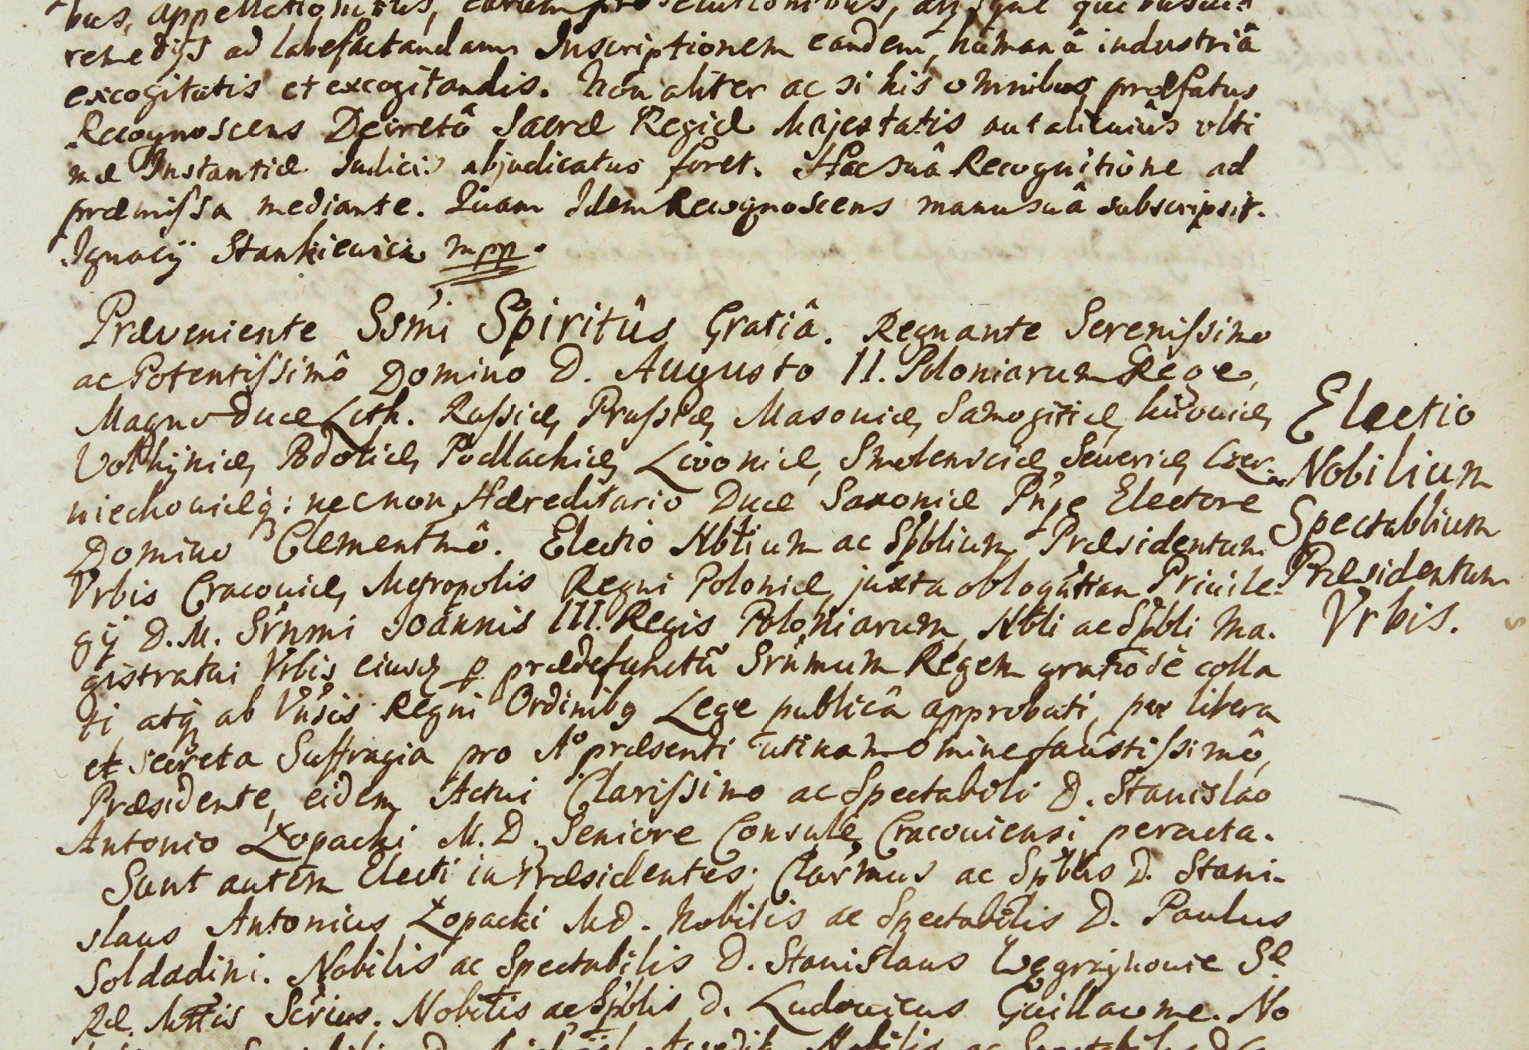 remedijs ad labefactandam Inscriptionem eandem, humanâ industriâ
excogitatis et excogitandis. Non aliter ac si his omnibus præfatus
Recognoscens Decretô Sacræ Regiæ Majestatis aut alicuiûs ulti
mæ Instantiæ Judicij abjudicatus foret. Hac suâ Recognitione ad
præmissa mediante. Quam Idem Recognoscens manu suâ subscripsit.
Ignacÿ Stankiewicz mpp.
Præveniente Ssmi Spiritûs Gratiâ. Regnante Serenissimo
ac Potentissimô Domino D. Augusto II. Poloniarum Rege,
Magno Duce Lith. Russiæ, Prussiæ, Masoviæ, Samogitiæ, Kijoviæ,
Volhyniæ, Podoliæ, Podlachiæ, Livoniæ, Smolensciæ, Severiæ, Czer-
niechoviæq; necnon Hæreditario Duce Saxoniæ Pnpe Electore
Domino Clementmô. Electio Nblium ac Spblium Præsidentum
Vrbis Cracoviæ, Metropolis Regni Poloniæ, juxta obloquutiam Privile-
gÿ D. M. Srnmi Joannis III. Regis Poloniarum, Nbli ac Spbli Ma-
gistratui Vrbis eiusq p prædefunctũ Srnmum Regem gratiosè colla
ti, atq ab Vnsis Regni Ordinibq Lege publicâ approbati, per libera
et secreta Suffragia pro Aº præsenti utinam ômine faustissimô,
Præsidente, eidem Actui Clarissimo ac Spectabili D. Stanislao
Antonio Łopacki M. D. Seniore Consule, Cracoviensi peracta.
Sunt autem Electi in Præsidentes: Clarmus ac Spblis D. Stani-
slaus Antonius Łopacki MD. Nobilis ac Spectabilis D. Paulus
Soldadini. Nobilis ac Spectabilis D. Stanislaus Węgrzynowic S.
Ræ. Mttis Scrius. Nobilis ac Spblis D. Ludovicus Guillaume. No
Electio
Nobilium
Spectablium
Præsidentum
Vrbis.